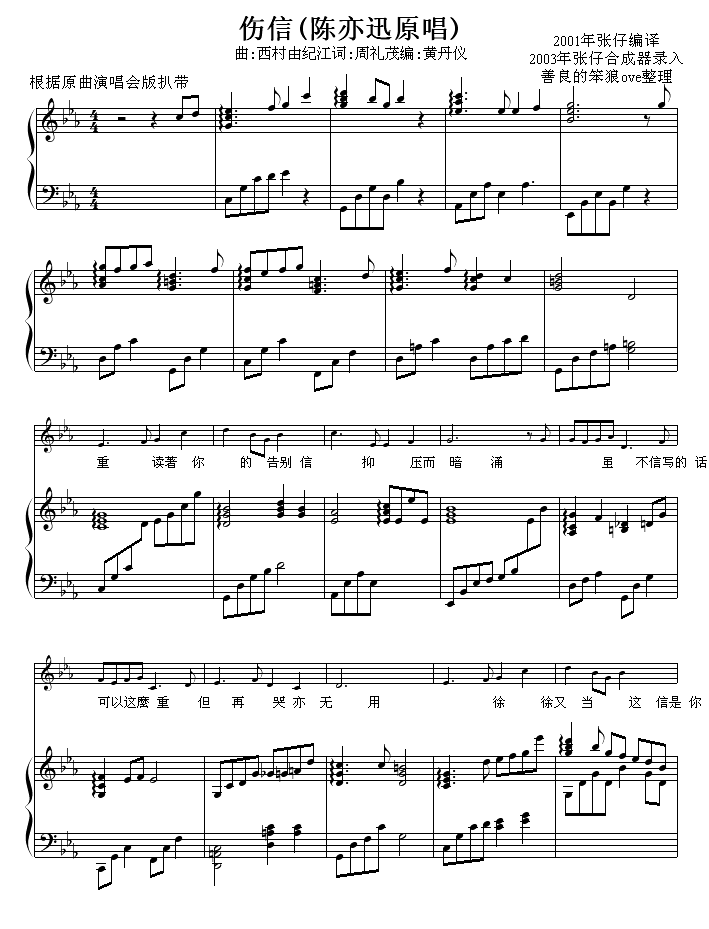 伤信(陈亦迅原唱)
曲:西村由纪江词:周礼茂编:黄丹仪
2001年张仔编译
2003年张仔合成器录入
善良的笨狼ove整理
根据原曲演唱会版扒带
重 读著 你 的 告别 信 抑 压而 暗 涌 虽 不信写的 话
可以这麼 重 但 再 哭 亦 无 用 徐 徐又 当 这 信是 你